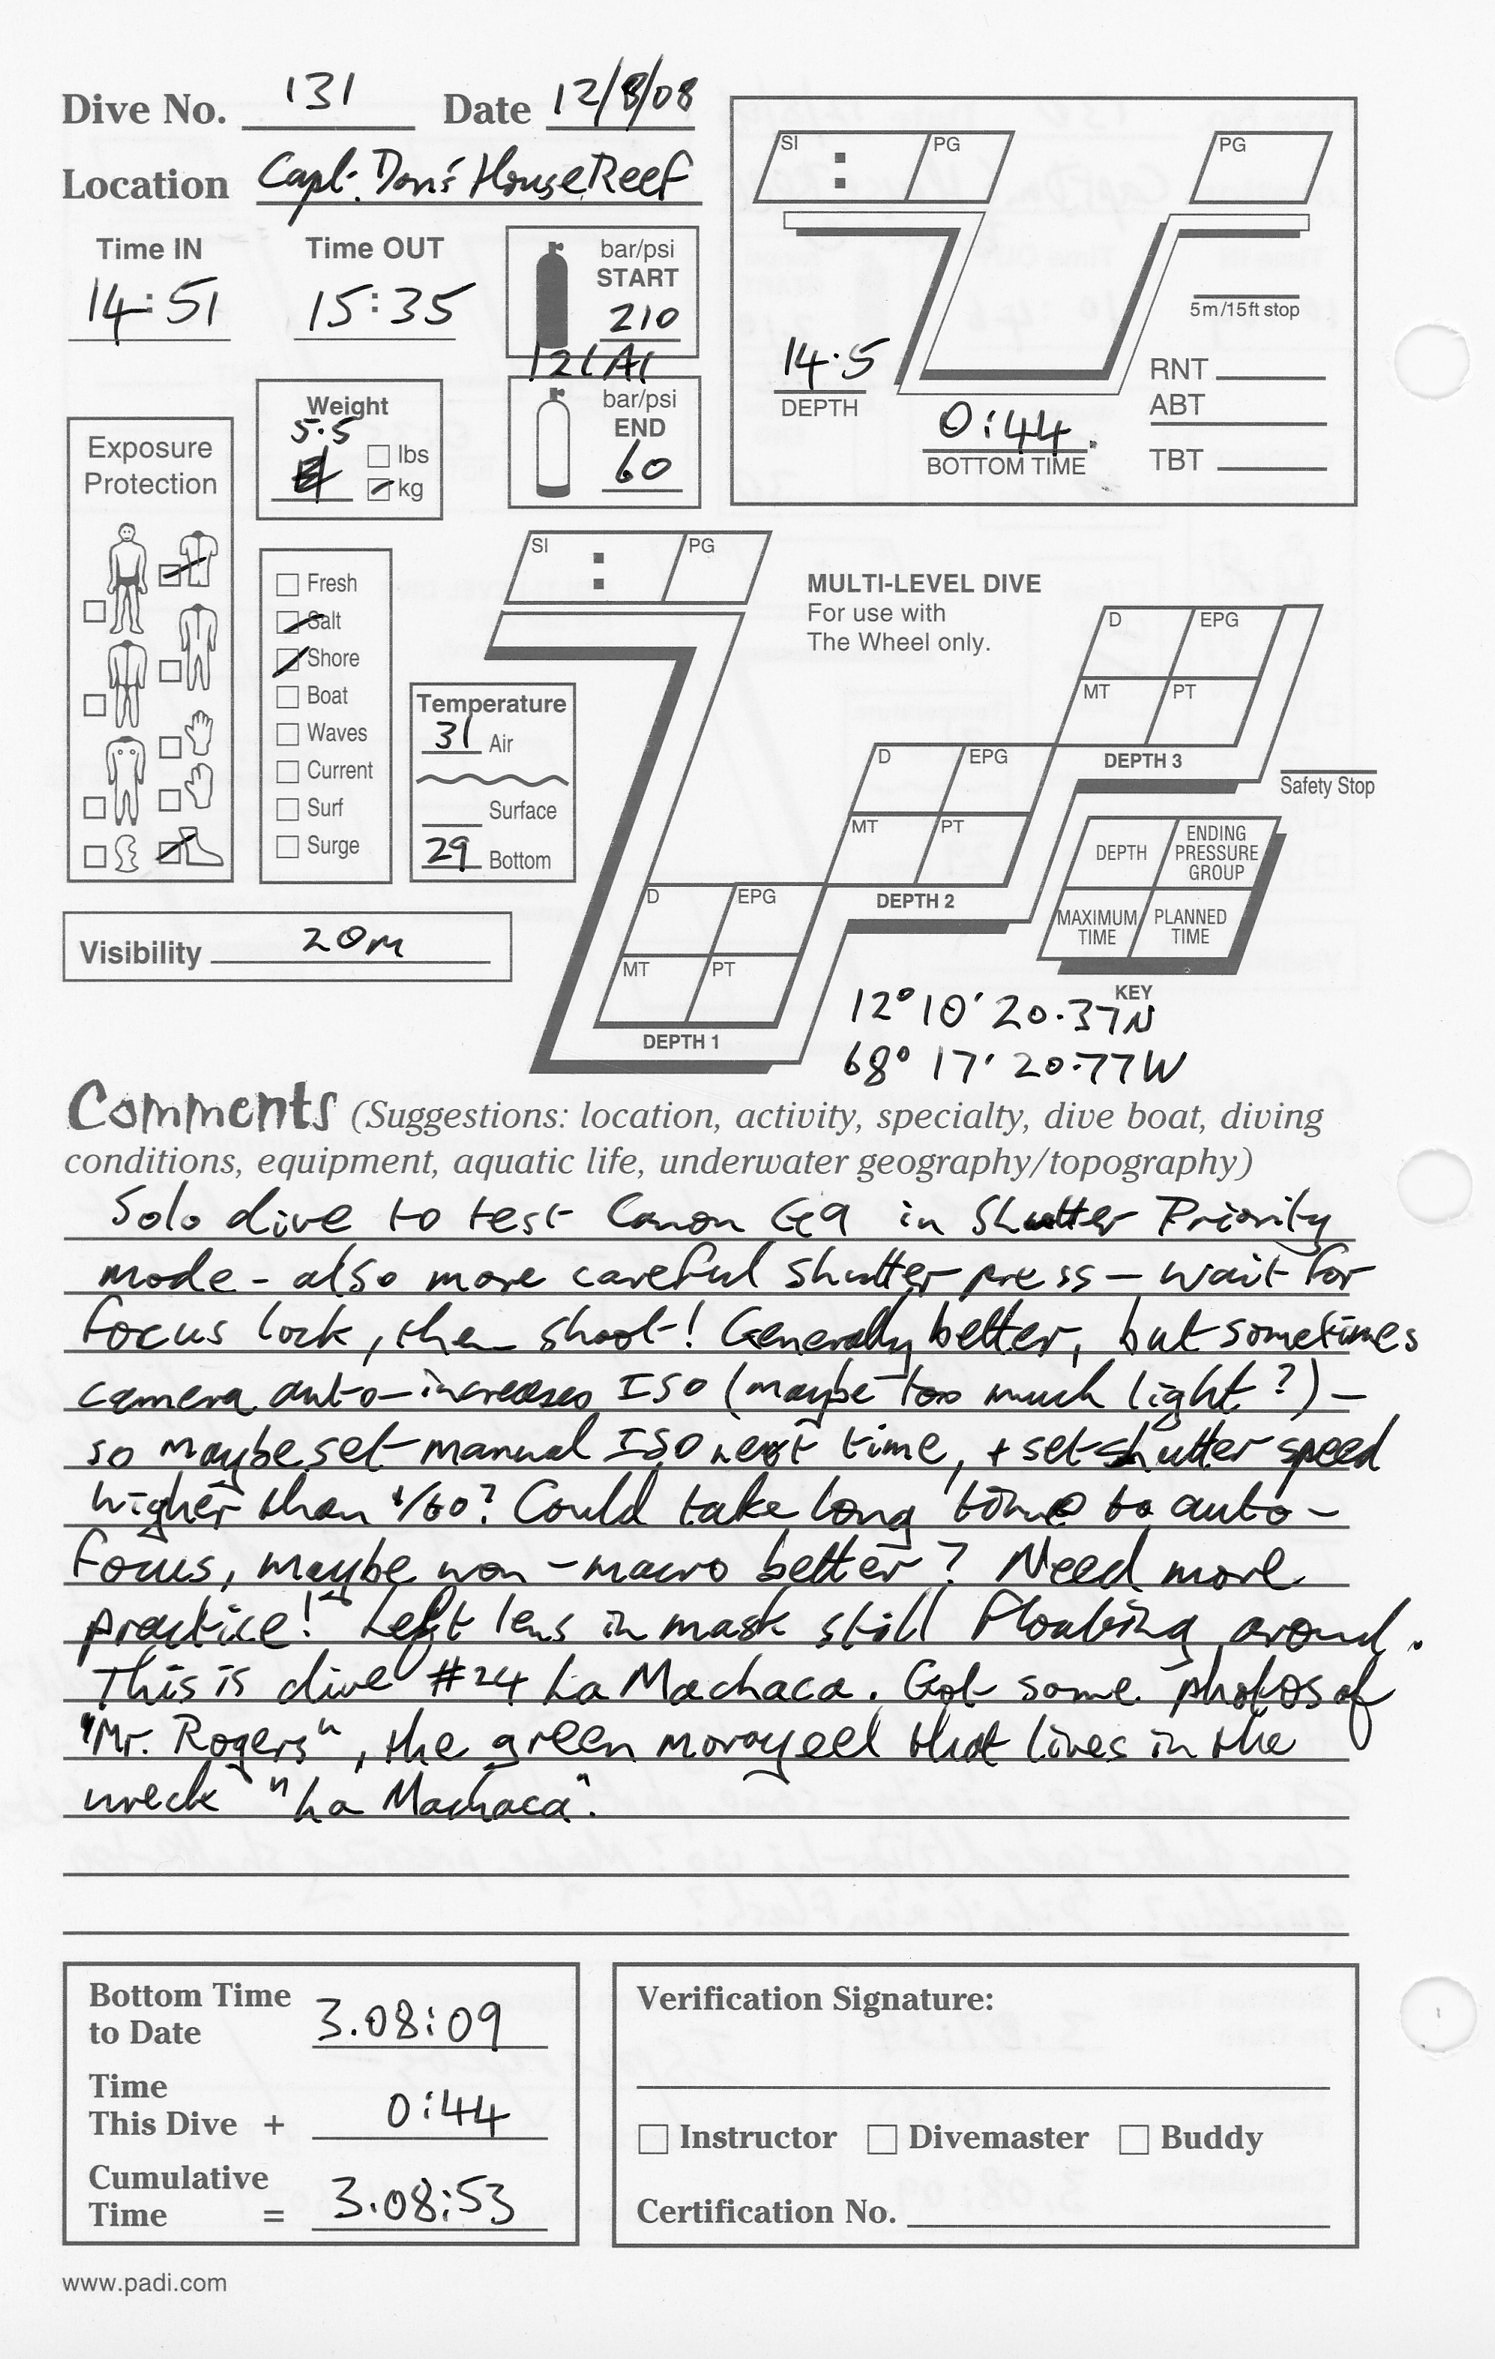 Dive No. 131 Date 12/8/08
Location Capt. Don's House Reef
Time IN Time OUT
14:51 15:35
bar/psi
START
210
12l Al
bar/psi
END
60
SI : PG
PG
5m/15ft stop
14.5
DEPTH
0:44
BOTTOM TIME
RNT
ABT
TBT
Weight
5.5
lbs
kg
Exposure
Protection
Fresh
Salt
Shore
Boat
Waves
Current
Surf
Surge
Temperature
31 Air
Surface
29 Bottom
Visibility 20m
SI : PG
MULTI-LEVEL DIVE
For use with
The Wheel only.
D EPG
MT PT
DEPTH 3
D EPG
MT PT
DEPTH 2
D EPG
MT PT
DEPTH 1
Safety Stop
DEPTH
ENDING
PRESSURE
GROUP
MAXIMUM
TIME
PLANNED
TIME
KEY
12° 10' 20.37N
68° 17' 20.77W
Comments (Suggestions: location, activity, specialty, dive boat, diving
conditions, equipment, aquatic life, underwater geography/topography)
Solo dive to test Canon G9 in Shutter Priority
mode - also more careful shutter press - wait for
focus lock, then shoot! Generally better, but sometimes
camera auto-increases ISO (maybe too much light?) -
so maybe set manual ISO next time, + set shutter speed
higher than 1/60? Could take long time to auto-
focus, maybe non-macro better? Need more
practice! Left lens in mask still floating around.
This is dive #24 La Machaca. Got some photos of
"Mr. Rogers", the green moray eel that lives in the
wreck "La Machaca".
Bottom Time
to Date 3.08:09
Time
This Dive + 0:44
Cumulative
Time = 3.08:53
Verification Signature:
Instructor Divemaster Buddy
Certification No.
www.padi.com